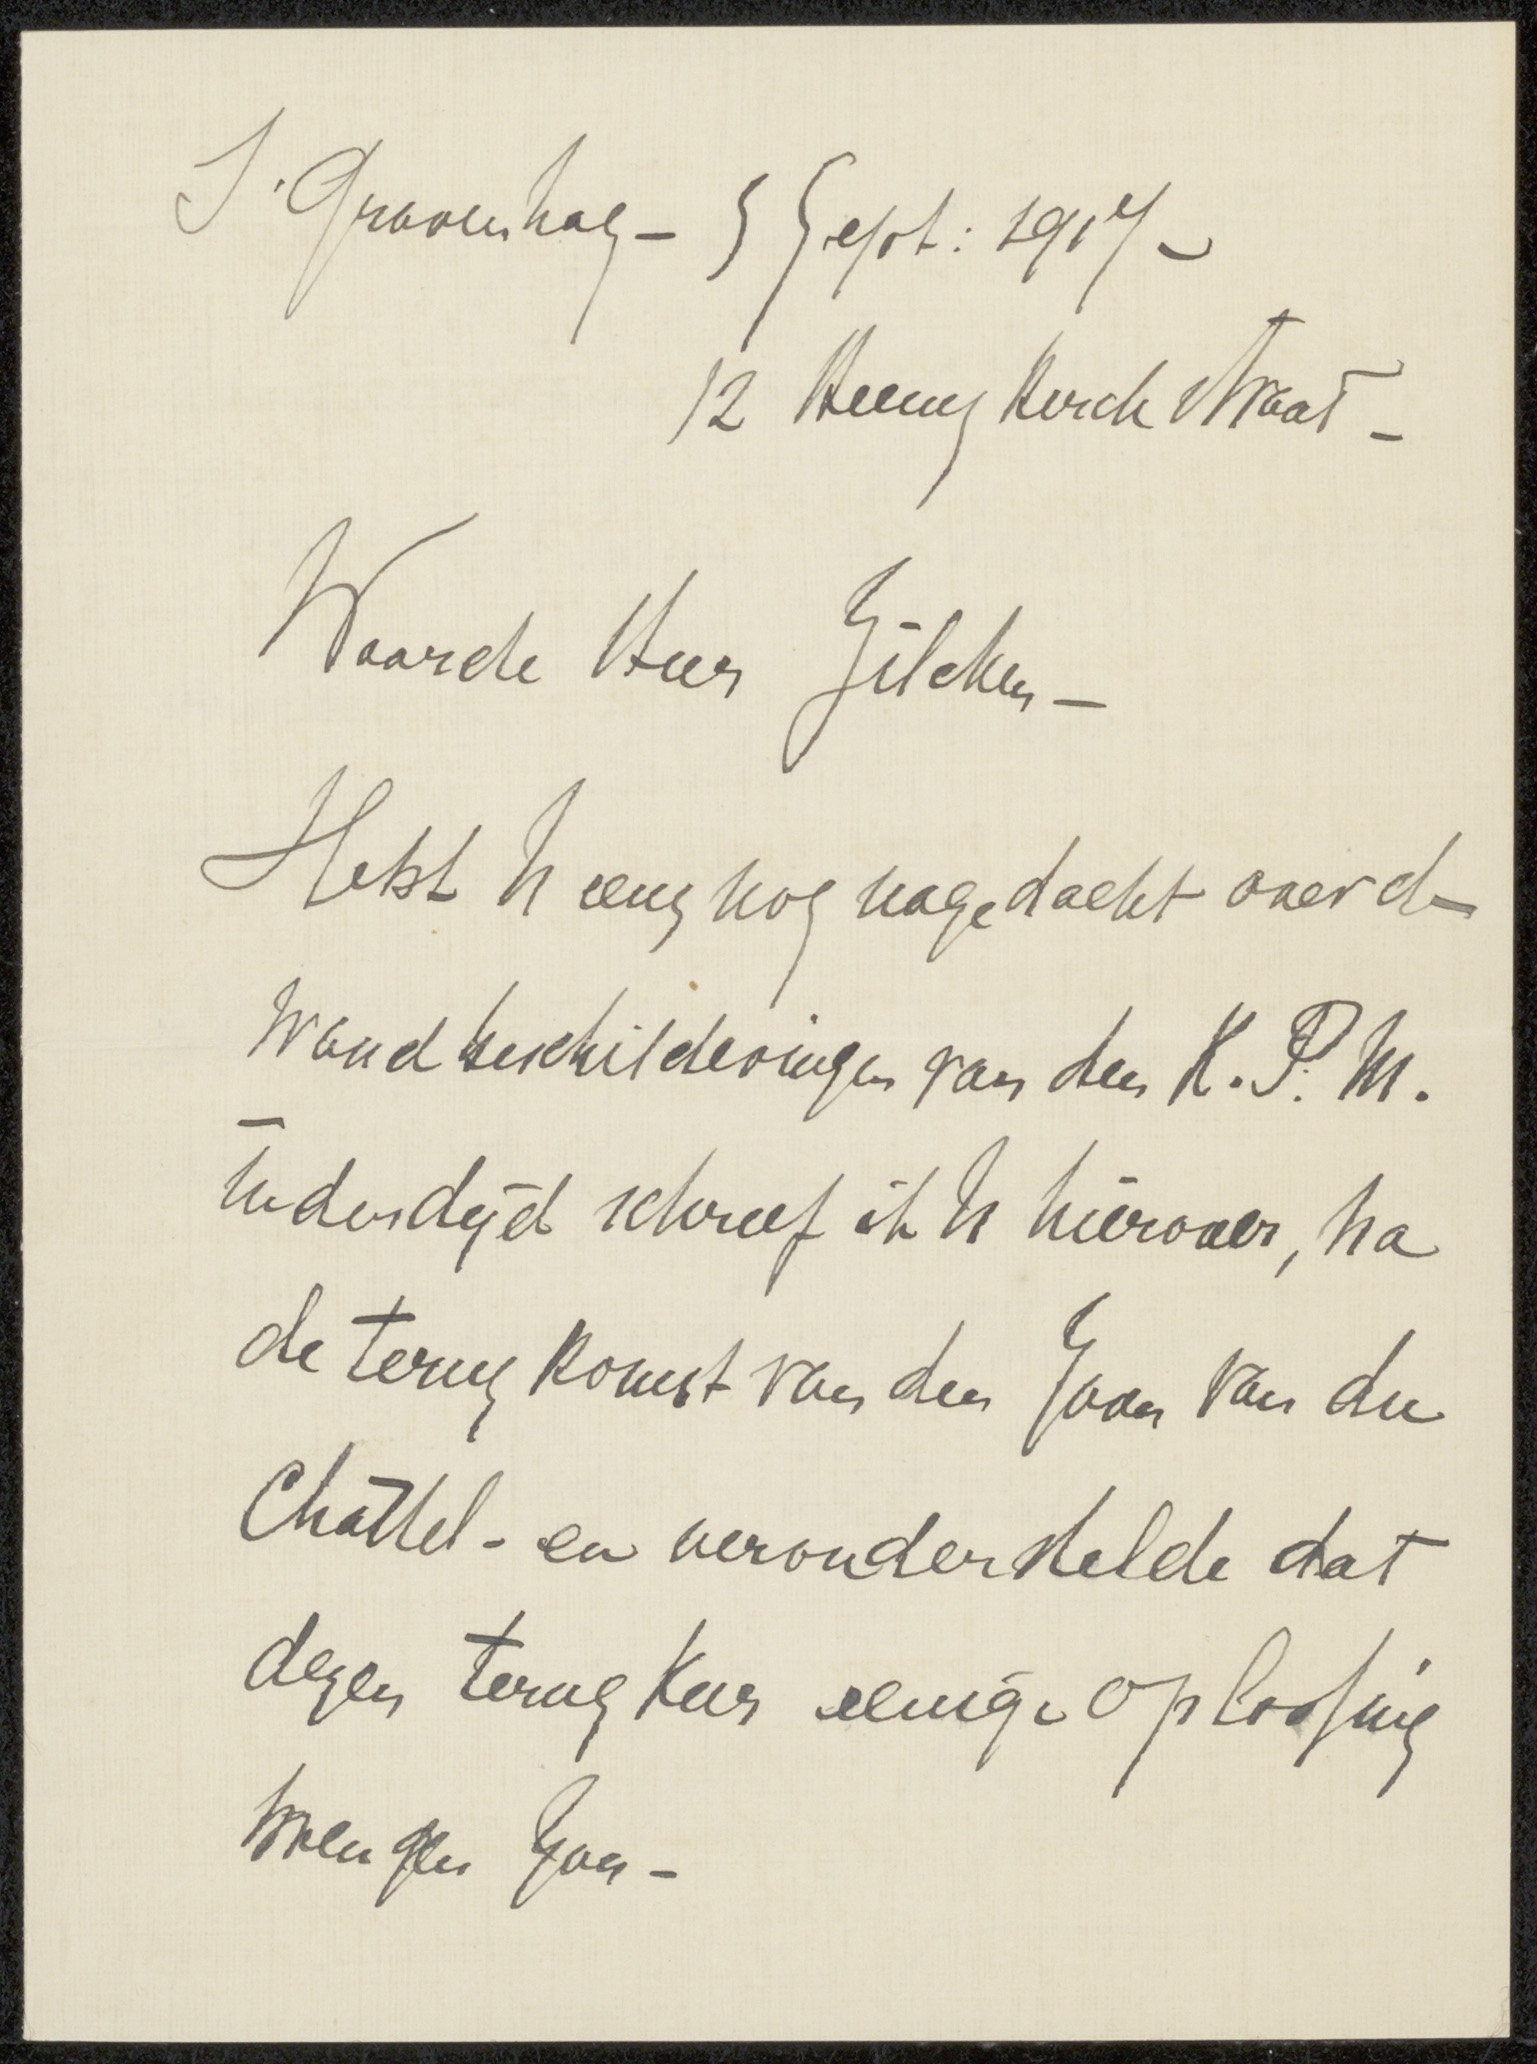 S'Gravenhag - 5 Sept: 1917 -
12 Heemskerck straat -
Waarde Heer Zilcken -
Hebt U eens nog nagedacht over de
wandbeschilderingen van den K. P. M.
indertijd schreef ik U hierover, na
de terugkomst van den Zoon van du
Châttel - en veronderstelde dat
dezen terugkeer eenige oploosing
brengen zou -